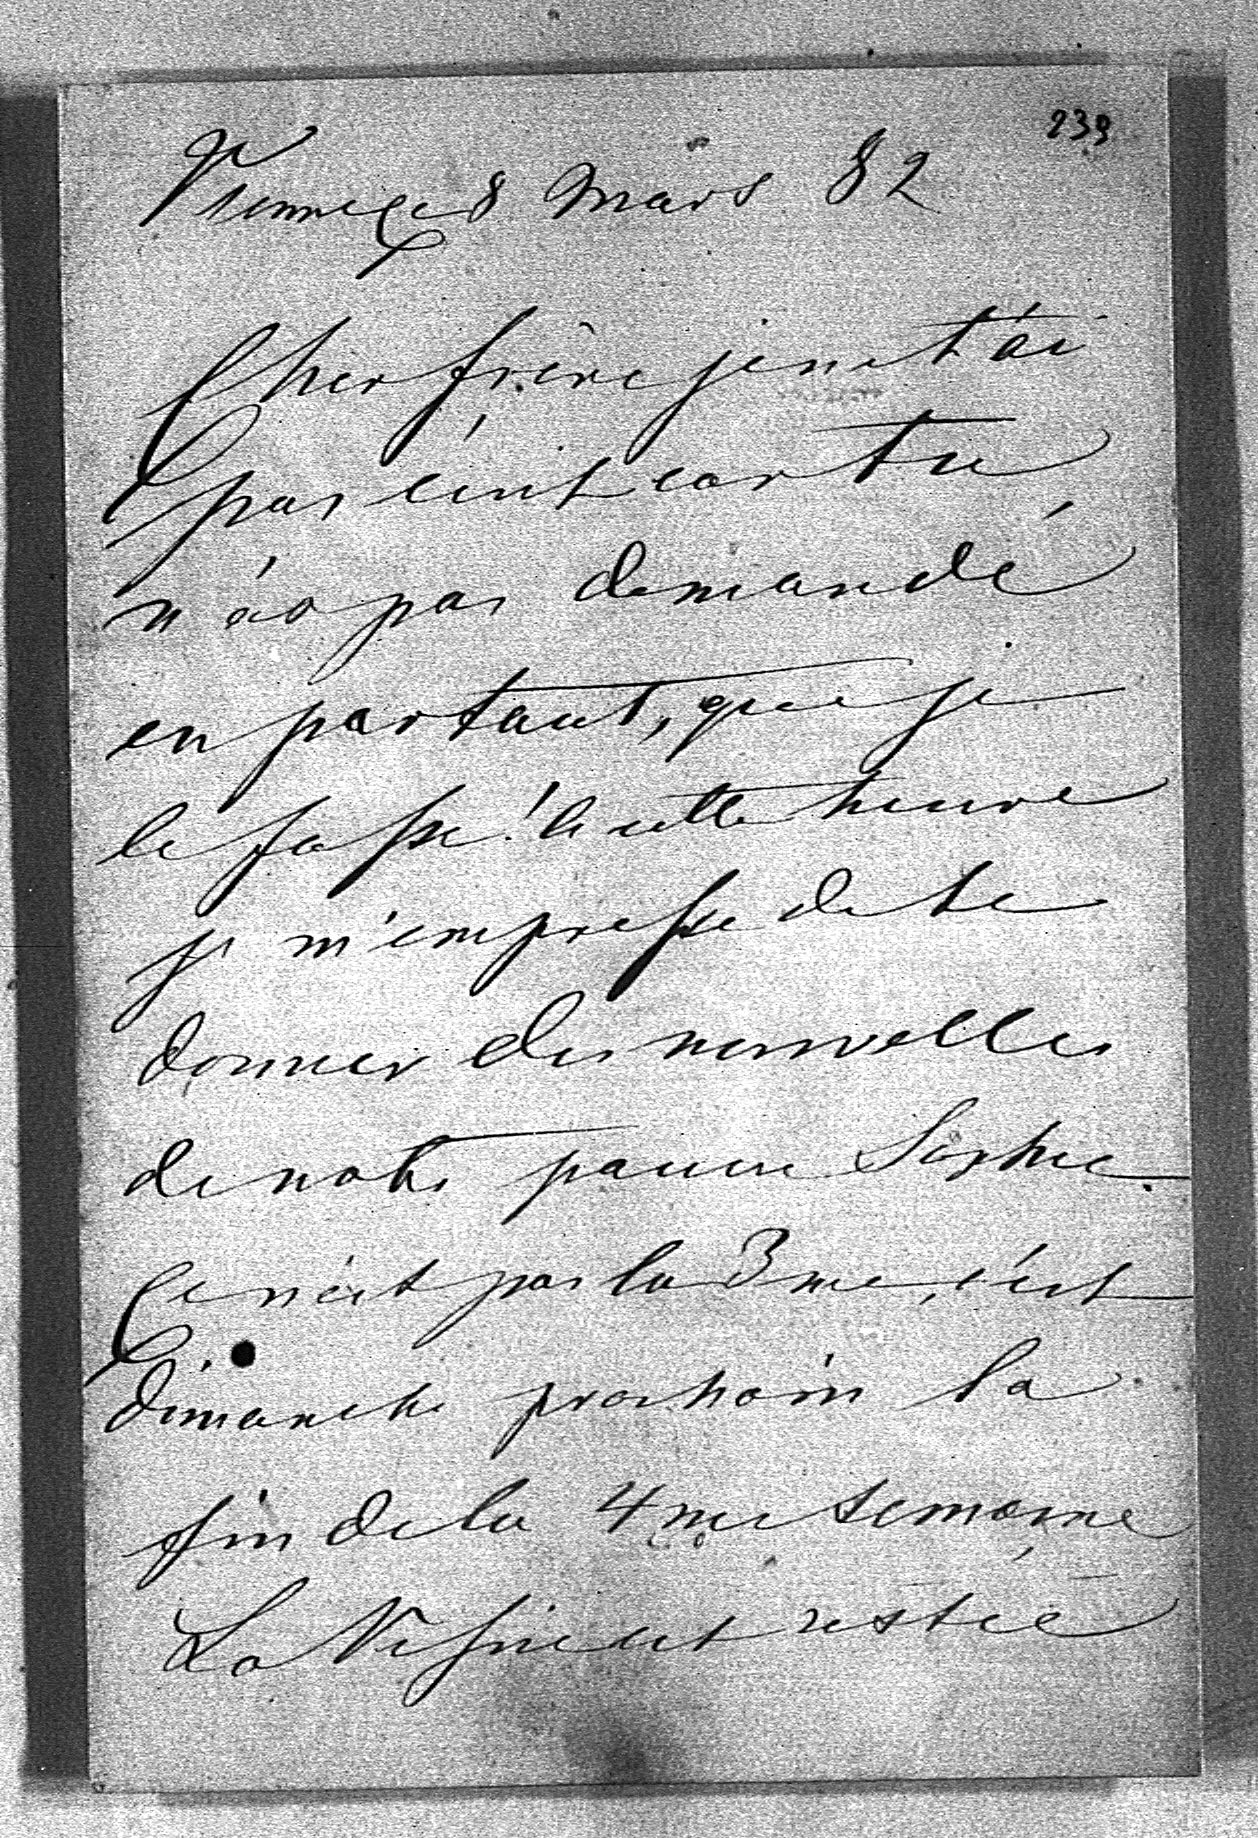 239
Vienne ce 8 Mars 82
Cher frère je ne t'ai
pas écrit car tu
n'as pas demandé
en partant, que je
le fasse! à cette heure
je m'empresse de te
donner des nouvelles
de notre pauvre Sophie.
Ce n'est pas la 3me, c'est
dimanche prochain la
fin de la 4me semaine
La est restée